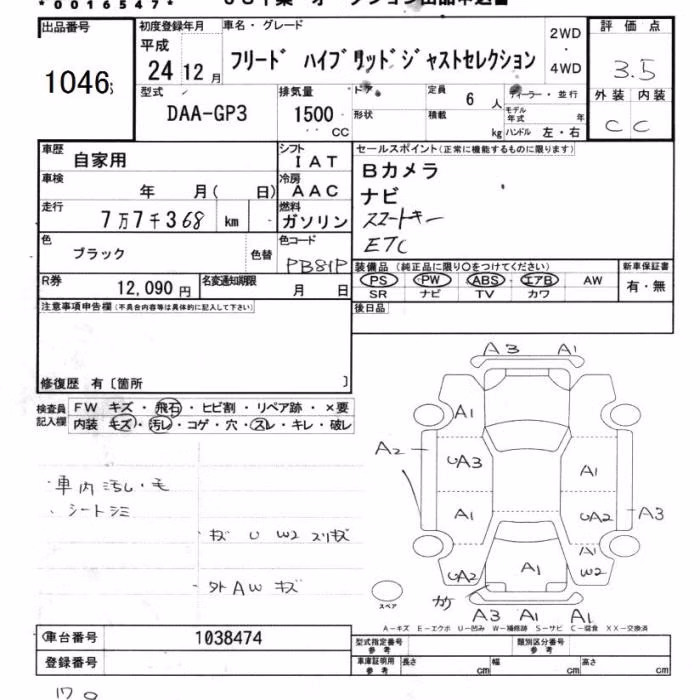 *0016547*
出品番号
1046
初度登録年月
平成
24 12 月
車名・グレード
フリード ハイブリッドジャストセレクション
2WD
・
4WD
評価点
3.5
外装 内装
C C
型式
DAA-GP3
排気量
1500
CC
ドア
形状
定員
6 人
積載
kg
ディーラー・並行
モデル年式 年
ハンドル 左・右
車歴
自家用
シフト
IAT
車検
年 月( 日)
冷房
AAC
走行
7万7千368 km
燃料
ガソリン
色
ブラック
色替
色コード
PB81P
R券
12,090 円
名変通知期限
月 日
セールスポイント(正常に機能するものに限ります)
Bカメラ
ナビ
スマートキー
ETC
装備品 (純正品に限り○をつけてください)
PS PW ABS エアB AW
SR ナビ TV カワ
新車保証書
有・無
後日品
注意事項申告欄(不具合内容等は具体的に記入して下さい)
修復歴 有〔箇所 〕
検査員
記入欄
FW キズ・飛石・ヒビ割・リペア跡・×要
内装 キズ・汚レ・コゲ・穴・スレ・キレ・破レ
・車内汚レ・モ
・シートシミ
・キズ U W2 スリキズ
・外AWキズ
A3 A1
A1
A2 UA3 A1
A1 UA2 A3
A1
UA2 A1 W2
スペア
A3 A1 A1
A－キズ E－エクボ U－凹み W－補修跡 S－サビ C－腐食 XX－交換済
車台番号
1038474
登録番号
型式指定番号
参考
類別区分番号
参考
車庫証明用
参考
長さ cm
幅 cm
高さ cm